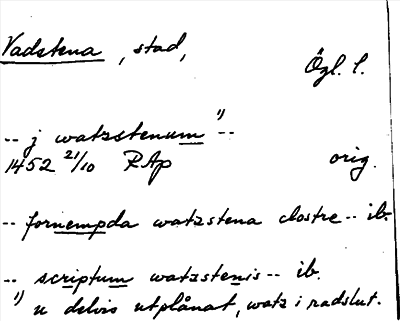 Vadstena, stad,
Ögl. l.
-- j watzstenum ¹) --
1452 21/10 RAp orig.
-- fornempda watzstena clostre -- ib.
-- scriptum watzstenis -- ib.
¹) u delvis utplånat, watz i radslut.